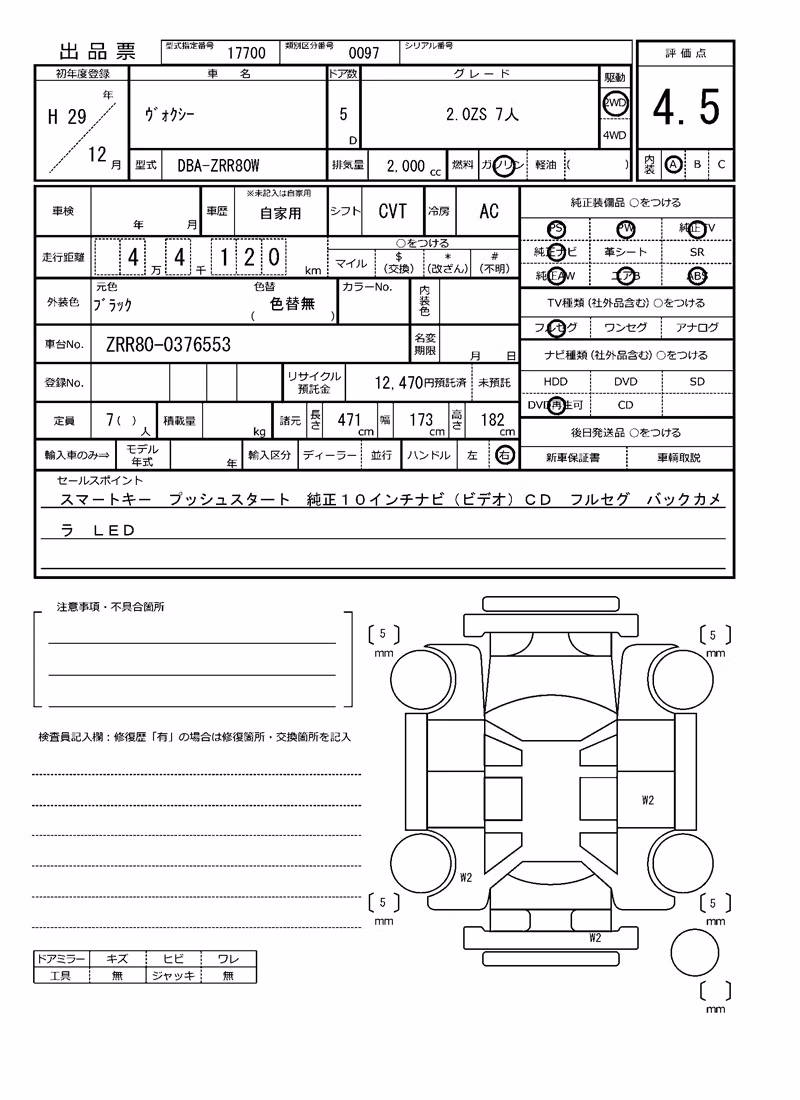 出品票 型式指定番号 17700 類別区分番号 0097 シリアル番号
評価点
4.5
内装 A B C
初年度登録 車名 ドア数 グレード 駆動
H 29 年 12 月 ヴォクシー 5 D 2.0ZS 7人 2WD
4WD
型式 DBA-ZRR80W 排気量 2,000 cc 燃料 ガソリン 軽油 ( )
車検 年 月 車歴 ※未記入は自家用 自家用 シフト CVT 冷房 AC
走行距離 4 万 4 千 1 2 0 km ○をつける
マイル $ (交換) * (改ざん) # (不明)
外装色 元色 ブラック 色替 ( 色替無 ) カラーNo. 内装色
車台No. ZRR80-0376553 名変期限 月 日
登録No. リサイクル預託金 12,470円預託済 未預託
定員 7( )人 積載量 kg 諸元 長さ 471 cm 幅 173 cm 高さ 182 cm
輸入車のみ⇒ モデル年式 年 輸入区分 ディーラー 並行 ハンドル 左 右
純正装備品 ○をつける
PS PW 純正TV
純正ナビ 革シート SR
純正AW エアB ABS
TV種類(社外品含む)○をつける
フルセグ ワンセグ アナログ
ナビ種類(社外品含む)○をつける
HDD DVD SD
DVD再生可 CD
後日発送品 ○をつける
新車保証書 車輌取説
セールスポイント
スマートキー プッシュスタート 純正10インチナビ(ビデオ)CD フルセグ バックカメ
ラ LED
注意事項・不具合箇所
検査員記入欄：修復歴「有」の場合は修復箇所・交換箇所を記入
ドアミラー キズ ヒビ ワレ
工具 無 ジャッキ 無
5 mm
5 mm
W2
W2
5 mm
5 mm
W2
mm